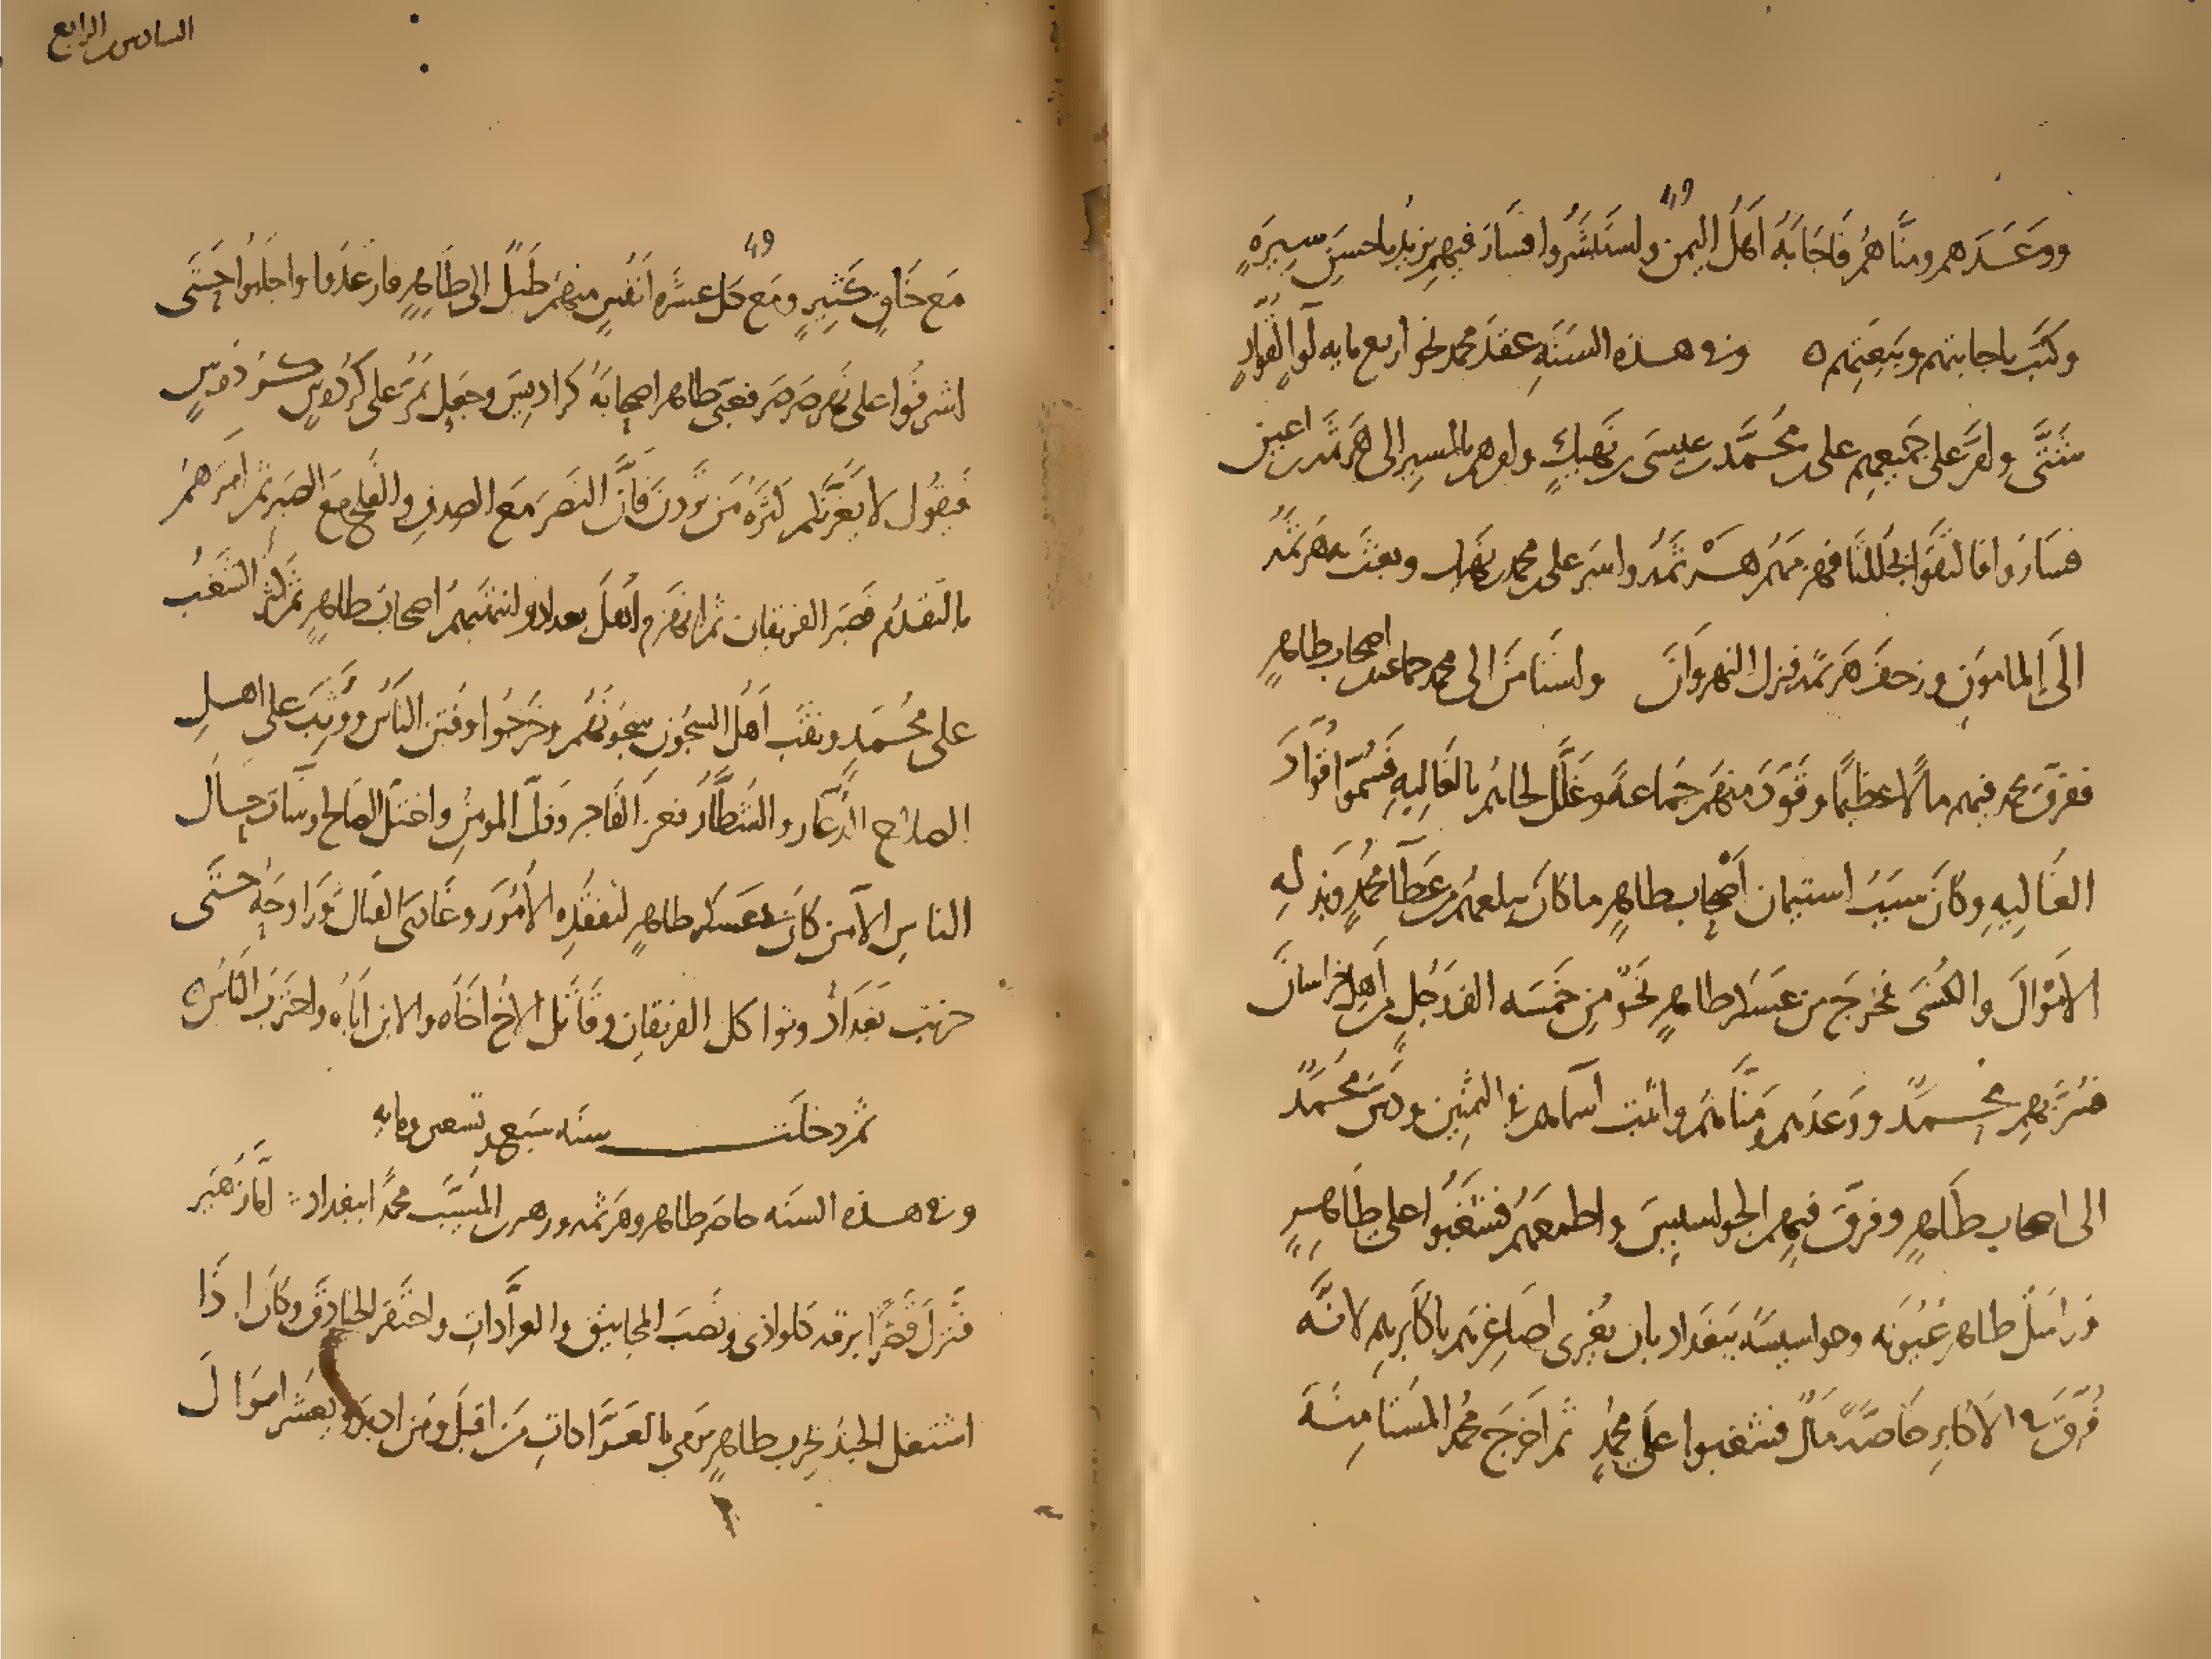 ٤٩
ووعدهم ومناهم فاجابه اهل اليمن واستبشروا فسار فيهم يزيد باحسن سيرة
وكتب باجابتهم وبيعتهم ٥ وفي هذه السنة عقد محمد نحو اربع مايه لوا لقواد
شتى وامر على جميعهم على بن محمد بن عيسى بن نهيك وامرهم بالمسير الى هرثمة بن اعين
فساروا فالتقوا بجللتا فهزمهم هرثمة واسر على بن محمد بن نهيك وبعث به هرثمة
الى المامون وزحف هرثمة فنزل النهروان واستامن الى محمد جماعة من اصحاب طاهر
ففرق محمد فيهم مالا عظيما وقود منهم جماعة وغلل لحاهم بالغالية فسموا قواد
الغالية وكان سبب استيمان اصحاب طاهر ما كان يبلغهم من عطا محمد وبذله
الاموال والكسى فخرج من عسكر طاهر نحو من خمسه الف رجل من اهل خراسان
فسر بهم محمد ووعدهم ومناهم واثبت اسماهم في الثمنين ودس محمد
الى اصحاب طاهر وفرق فيهم الجواسيس واطمعهم فشغبوا على طاهر
فراسل طاهر عيونه وجواسيسه ببغداد بان يغرى اصاغرهم باكابرهم لانه
فرق في الاكابر خاصة مال فشغبوا على محمد ثم اخرج محمد المستامنة
السادس الرابع
٤٩
مع خلق كثير ومع كل عشرة انفس منهم طبل الى طاهر فارعدوا واجلبوا حتى
اشرفوا على نهر صرصر فعبى طاهر اصحابه كراديس وجعل يمر على كردوس كردوس
فيقول لا يغرنكم كثرة من ترون فان النصر مع الصدق والفلج مع الصبر ثم امرهم
بالتقدم فصبر الفريقان ثم انهزم اهل بغداد وانتهبهم اصحاب طاهر ثم كثر الشغب
على محمد ونقب اهل السجون سجونهم وخرجوا وفتن الناس ووثب على اهل
الصلاح الدعار والشطار فعز الفاجر وذل المومن واختل الصالح وساءت حال
الناس الا من كان في عسكر طاهر لتفقده الامور وغادى القتال وراوحه حتى
خربت بغداد وتواكل الفريقان وقاتل الاخ اخاه والابن اباه واحترب الناس ٥
ثم دخلت سنة سبع وتسعين ومايه
وفي هذه السنه حاصر طاهر وهرثمه وزهير بن المسيب محمدا ببغداد اما زهير
فنزل قصرا برقة كلواذى ونصب المجانيق والعرادات واحتفر الخنادق وكان اذا
اشتغل الجند بحرب طاهر يرمى بالعرادات من اقبل ومن ادبر ويعشر اموال